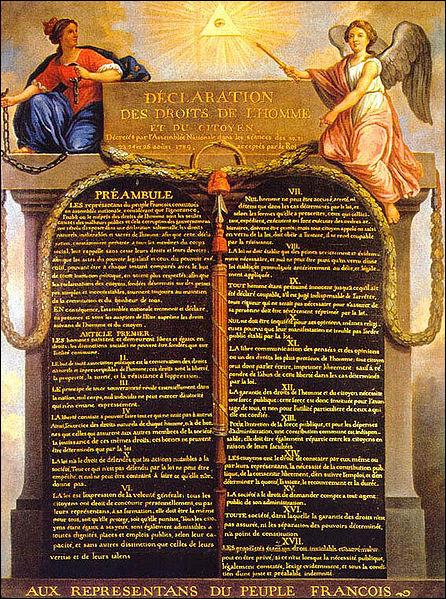 DÉCLARATION
DES DROITS DE L'HOMME
ET DU CITOYEN,
Décrétés par l'Assemblée Nationale dans les séances des 20, 21
23, 24 et 26 août 1789, acceptés par le Roi
PRÉAMBULE
LES représentans du peuple François, constitués
en assemblée nationale, considérant que l'ignorance,
l'oubli ou le mépris des droits de l'homme sont les seules
causes des malheurs publics et de la corruption des gouvernemens
ont résolu d'exposer dans une déclaration solemnelle, les droits
naturels, inaliénables et sacrés de l'homme; afin que cette décla-
ration, constamment présente à tous les membres du corps
social, leur rappelle sans cesse leurs droits et leurs devoirs;
afin que les actes du pouvoir législatif et ceux du pouvoir exé-
cutif, pouvant être à chaque instant comparés avec le but
de toute institution politique, en soient plus respectés; afin que
les réclamations des citoyens, fondées désormais sur des princi-
pes simples et incontestables, tournent toujours au maintien
de la constitution et du bonheur de tous.
EN conséquence, l'assemblée nationale reconnoît et déclare,
en présence et sous les auspices de l'Etre suprême les droits
suivans de l'homme et du citoyen.
ARTICLE PREMIER.
LES hommes naissent et demeurent libres et égaux en
droits; les distinctions sociales ne peuvent être fondées que sur
l'utilité commune.
II.
LE but de toute association politique est la conservation des droits
naturels et imprescriptibles de l'homme; ces droits sont la liberté,
la propriété, la sureté, et la résistance à l'oppression.
III.
LE principe de toute souveraineté réside essentiellement dans
la nation, nul corps, nul individu ne peut exercer d'autorité
qui n'en émane expressément.
IV.
LA liberté consiste à pouvoir faire tout ce qui ne nuit pas à autrui
Ainsi, l'exercice des droits naturels de chaque homme, n'a de bor-
nes que celles qui assurent aux autres membres de la société
la jouissance de ces mêmes droits; ces bornes ne peuvent
être déterminées que par la loi.
V.
LA loi n'a le droit de défendre que les actions nuisibles à la
société. Tout ce qui n'est pas défendu par la loi ne peut être
empêché, et nul ne peut être contraint à faire ce qu'elle n'or-
donne pas.
VI.
LA loi est l'expression de la volonté générale; tous les
citoyens ont droit de concourir personnellement, ou par
leurs représentans, à sa formation; elle doit être la même
pour tous, soit qu'elle protège, soit qu'elle punisse. Tous les cito-
yens étant égaux à ses yeux, sont également admissibles à
toutes dignités, places et emplois publics, selon leur ca-
pacité, et sans autres distinction que celles de leurs
vertus et de leurs talens
VII.
NUL homme ne peut être accusé, arrêté, ni
détenu que dans les cas déterminés par la loi, et
selon les formes qu'elle a prescrites, ceux qui sollici-
tent, expédient, exécutent ou font exécuter des ordres ar-
bitraires, doivent être punis; mais tout citoyen appelé ou saisi
en vertu de la loi, doit obéir à l'instant, il se rend coupable
par la résistance.
VIII.
LA loi ne doit établir que des peines strictement et évidem-
ment nécessaires, et nul ne peut être puni qu'en vertu d'une
loi établie et promulguée antérieurement au délit, et légale-
ment appliquée.
IX.
TOUT homme étant présumé innocent jusqu'à ce qu'il ait
été déclaré coupable, s'il est jugé indispensable de l'arrêter,
toute rigueur qui ne serait pas nécessaire pour s'assurer de
sa personne doit être sévèrement réprimée par la loi.
X.
NUL ne doit être inquiété pour ses opinions, mêmes religi-
euses pourvu que leur manifestation ne trouble pas l'ordre
public établi par la loi.
XI.
LA libre communication des pensées et des opinions
est un des droits les plus précieux de l'homme; tout citoyen
peut donc parler, écrire, imprimer librement, sauf à ré-
pondre de l'abus de cette liberté dans les cas déterminés
par la loi.
XII.
LA garantie des droits de l'homme et du citoyen nécessite
une force publique; cette force est donc instituée pour l'avan-
tage de tous, et non pour l'utilité particulière de ceux a qui
elle est confiée.
XIII.
POUR l'entretien de la force publique, et pour les dépenses
d'administration, une contribution commune est indispen-
sable; elle doit être également répartie entre les citoyens en
raison de leurs facultés.
XIV.
LES citoyens ont le droit de constater par eux même ou
par leurs représentans, la nécessité de la contribution pub-
lique, de la consentir librement, d'en suivre l'emploi, et d'en
déterminer la quotité, l'assiette, le recouvrement et la durée.
XV.
LA société a le droit de demander compte a tout agent
public de son administration.
XVI.
TOUTE société, dans laquelle la garantie des droits n'est
pas assurée, ni les séparation des pouvoirs déterminée,
n'a point de constitution.
XVII.
LES propriétés étant un droit inviolable et sacré, nul ne
peut en être privé, si ce n'est lorsque la nécessité publique,
légalement constatée, l'exige évidemment, et sous la condi-
tion d'une juste et préalable indemnité.
AUX REPRESENTANS DU PEUPLE FRANCOIS